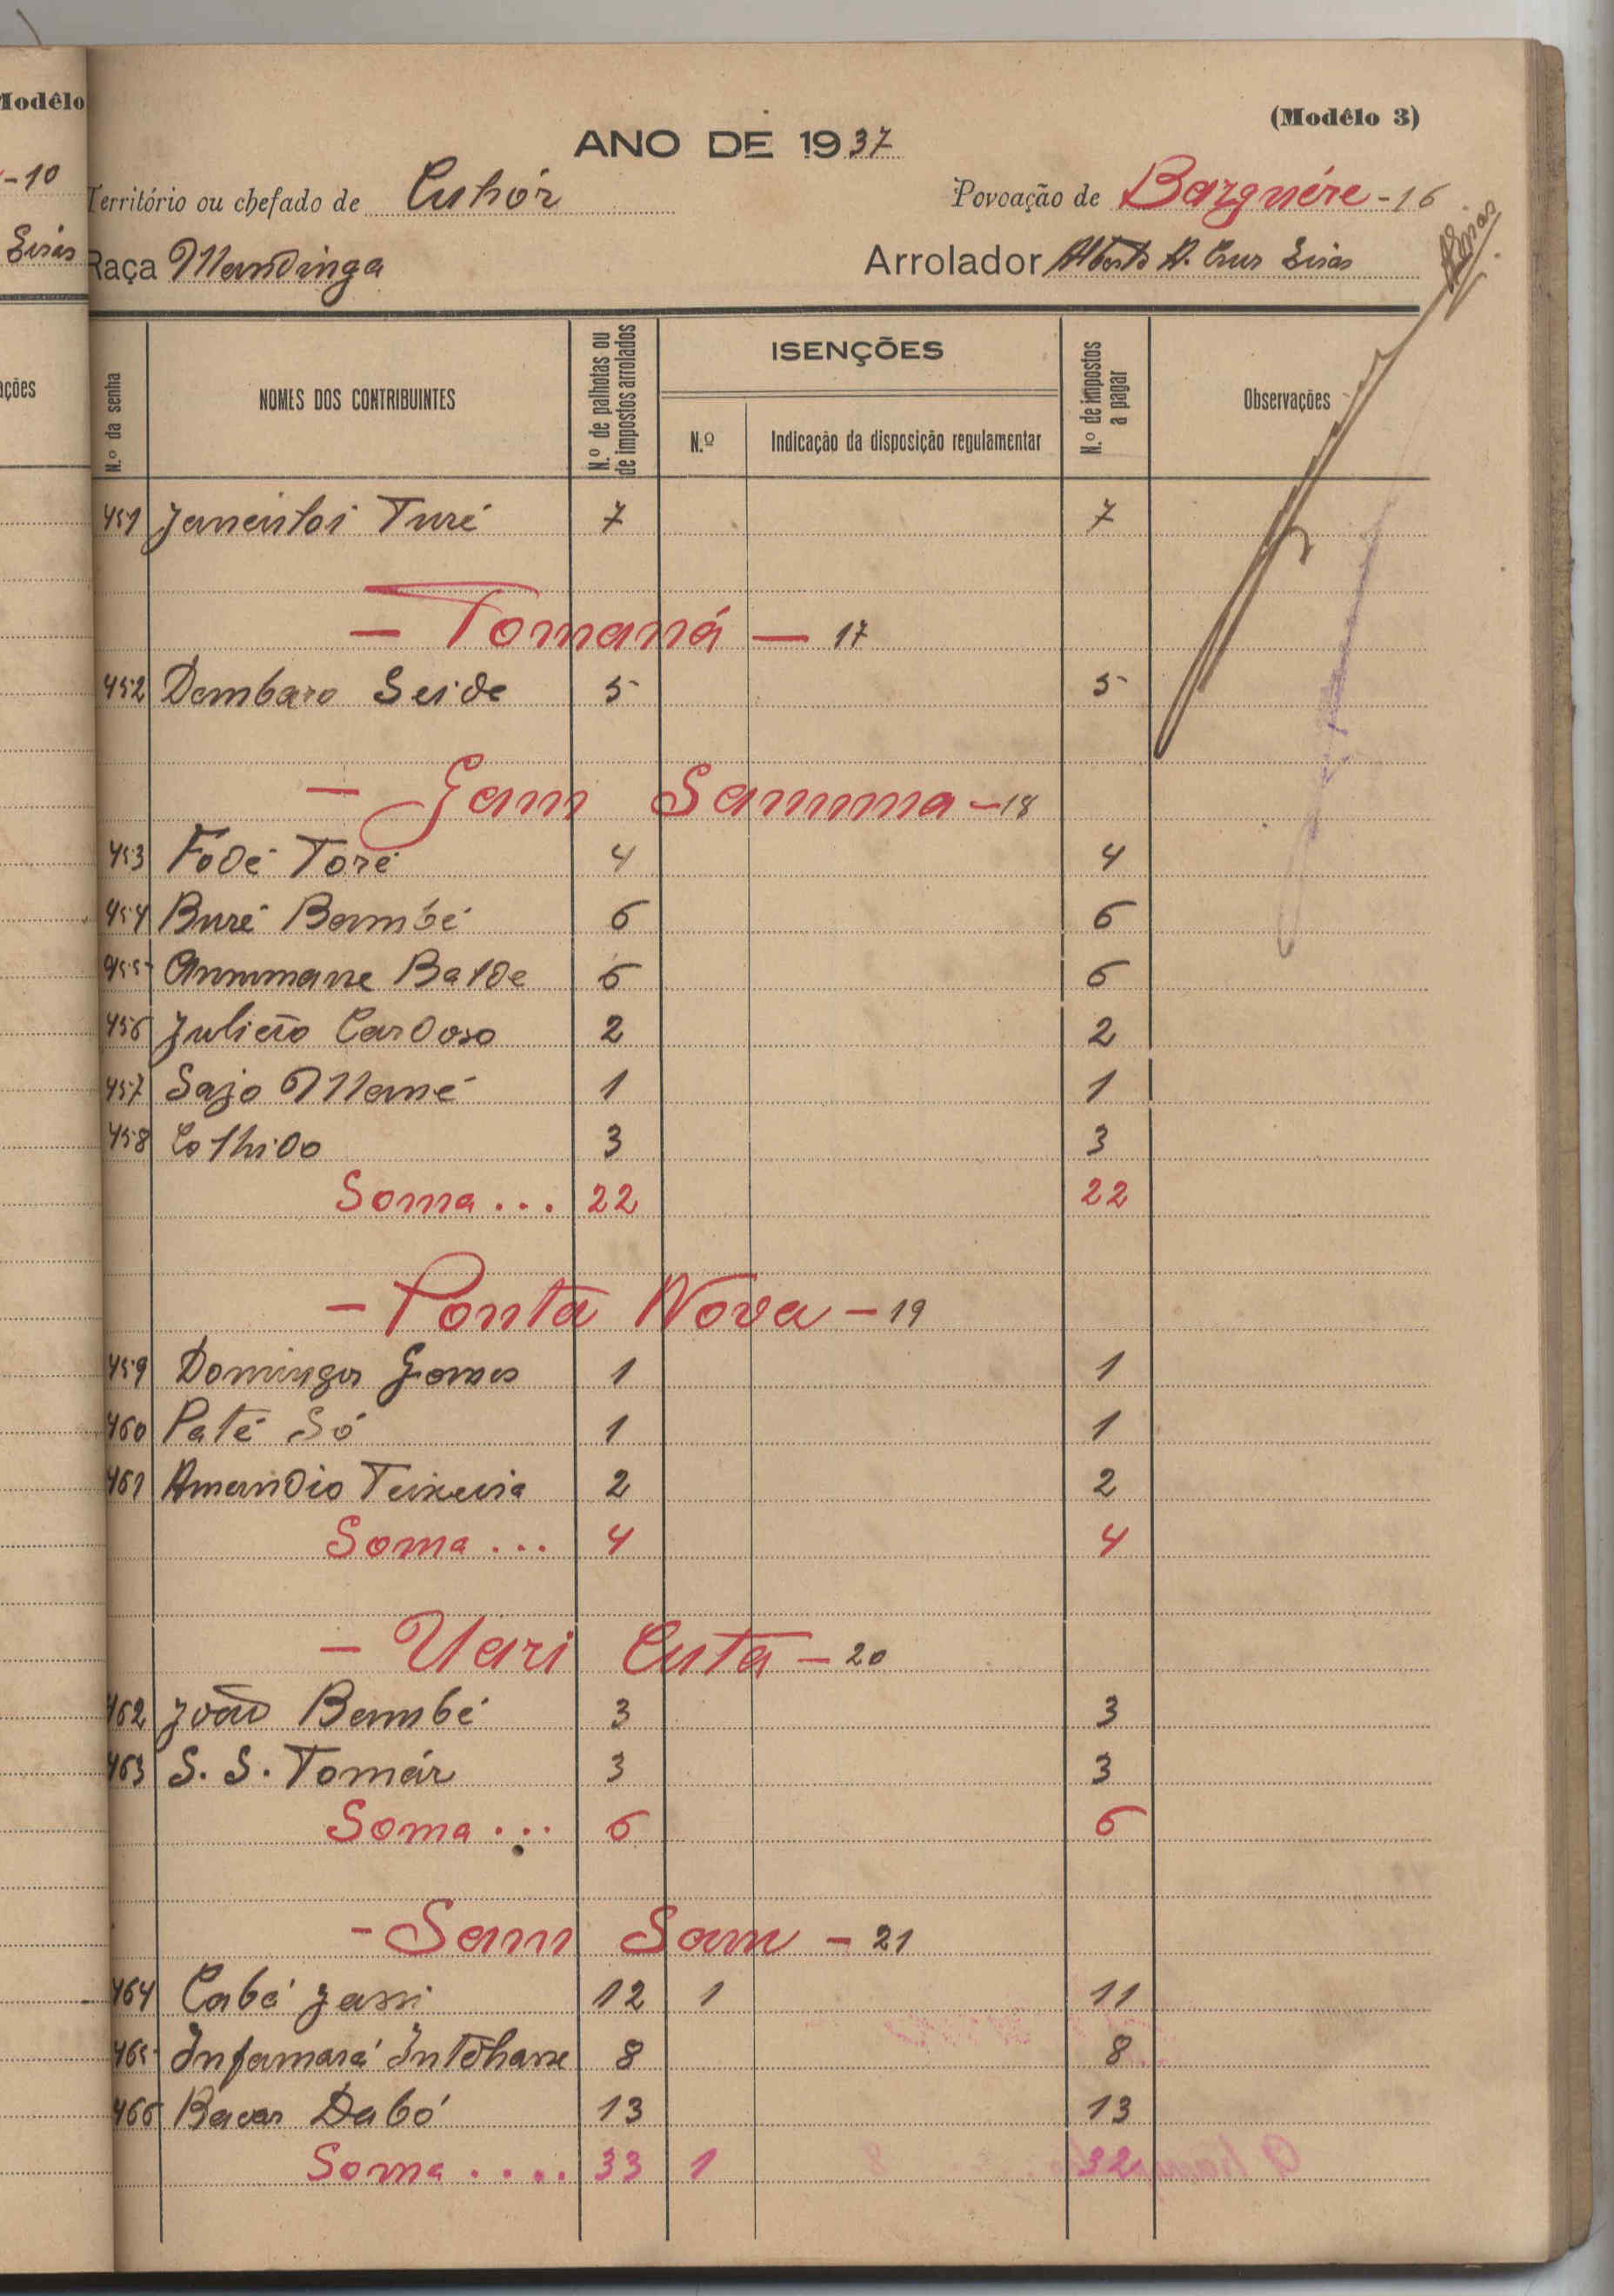 Modêlo
-10
Sisas
ações
(Modêlo 3)
ANO DE 1937
Território ou chefado de Cuhór Povoação de Bazguére - 16
Raça Mandinga Arrolador Alberto A. Cruz
N.º da senha NOMES DOS CONTRIBUINTES N.º de palhotas ou de impostos arrolados ISENÇÕES N.º de impostos a pagar Observações
N.º Indicação da disposição regulamentar
451 Turé 7 7
— Tomaná — 17
452 Dembaro Seide 5 5
— Gam Samma - 18
453 Fodé Toré 4 4
454 Buré Bambé 6 6
455 Ammmane Balde 6 6
456 Julião Cardoso 2 2
457 Sajo Mané 1 1
458 3 3
Soma ... 22 22
- Ponta Nova - 19
459 Domingos Gomes 1 1
460 Paté Só 1 1
461 Amandio Teixeira 2 2
Soma ... 4 4
- Uari Cuta - 20
462 João Bambé 3 3
463 S. S. Tomár 3 3
Soma ... 6 6
- Sam Sam - 21
464 Cabá Jassi 12 1 11
465 Infamará Intchasse 8 8
466 Bacar Dabó 13 13
Soma .... 33 1 32